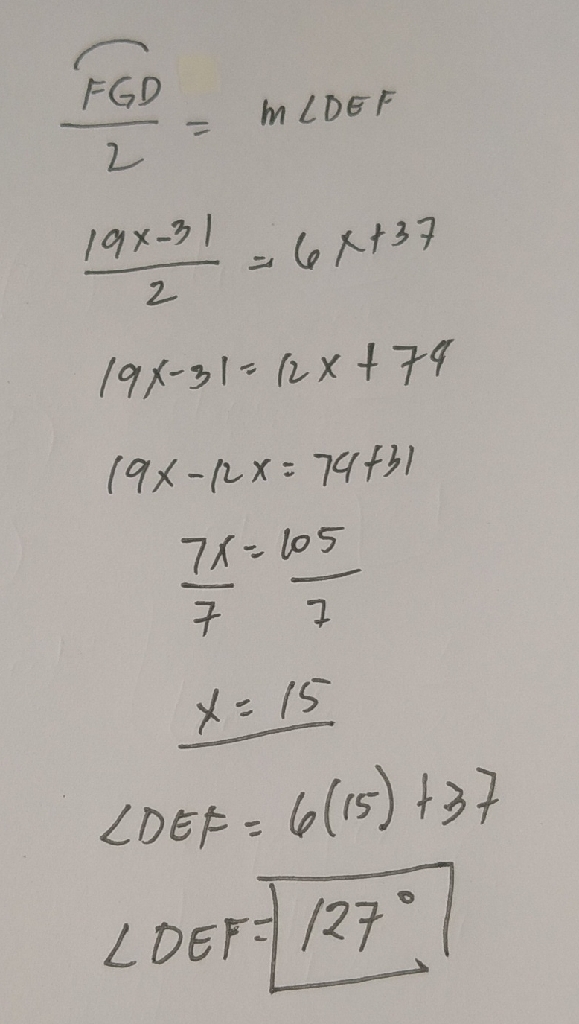 FGD
2 = m∠DEF
19x-31
2 = 6x+37
19x-31 = 12x + 74
19x-12x = 74+31
7x = 105
7 7
x = 15
∠DEF = 6(15) +37
∠DEF = 127°